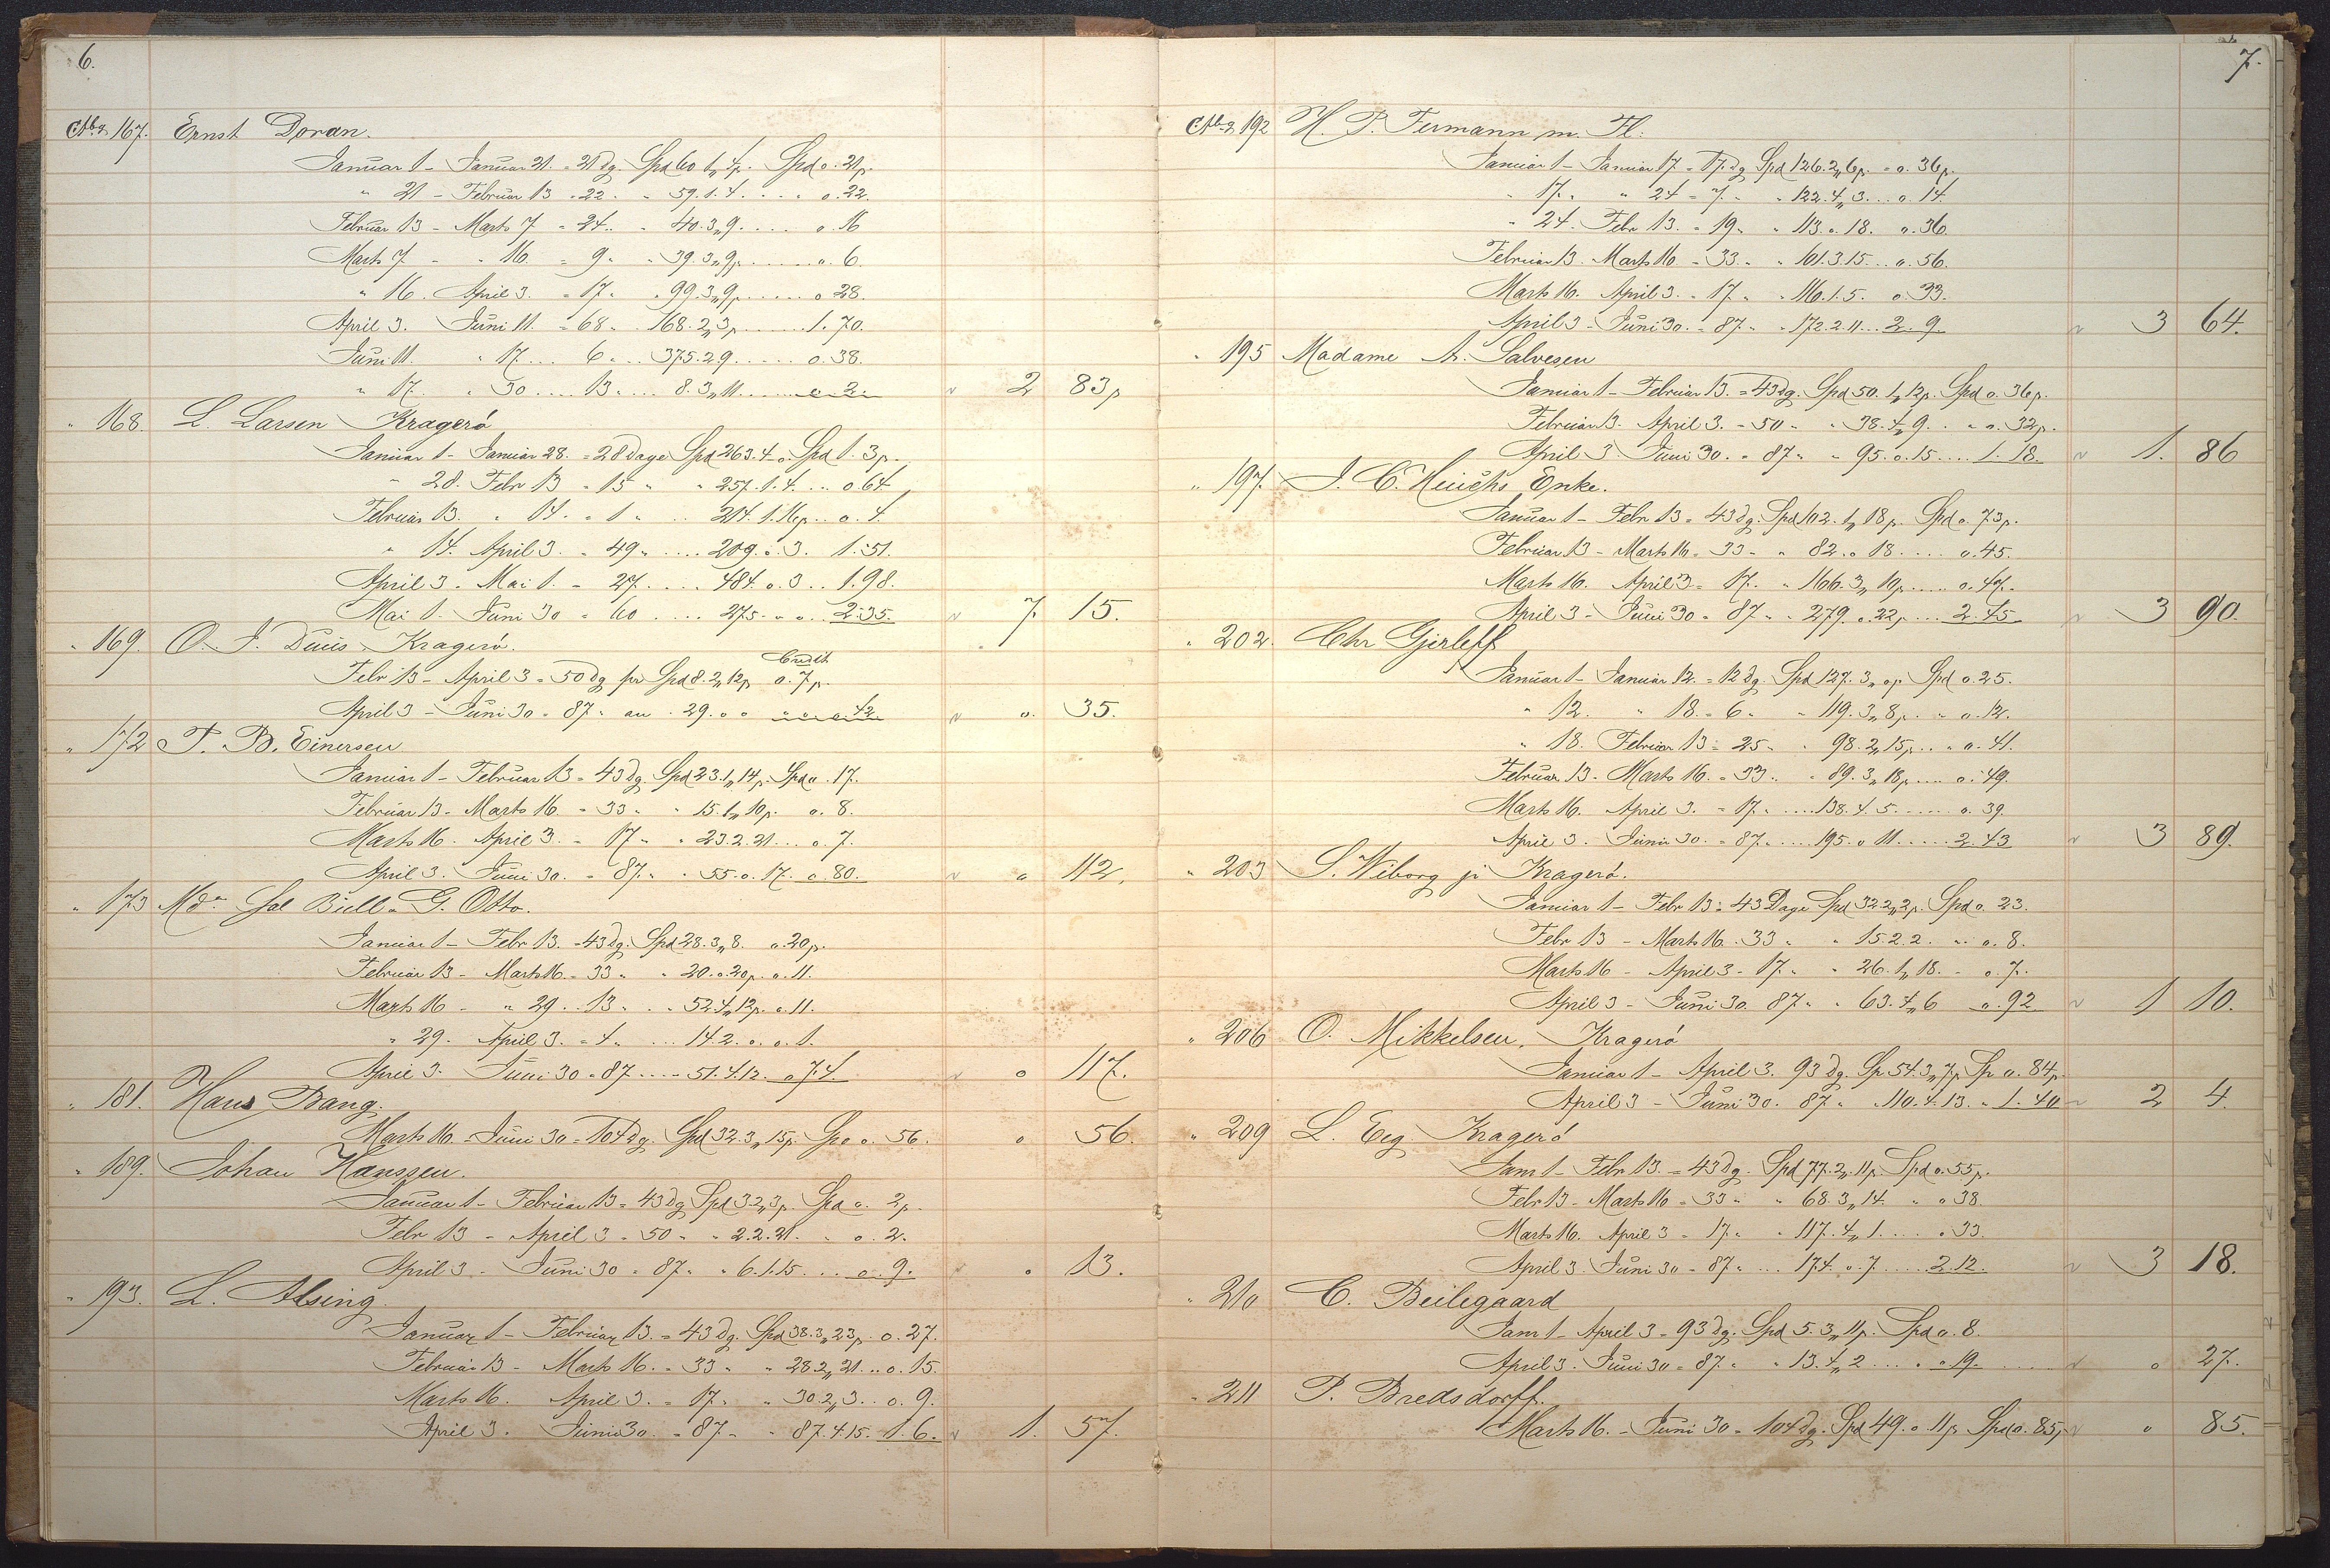 6.
167. Ernst Doran.
Januar 1 - Januar 21. = 21 dg. Spd 60 1„ 4p. Spd o. 21p.
" 21 - Februar 13 = 22 " " 59. 1. 4. . . . . " o. 22.
Februar 13 - Marts 7 = 24. . " 40. 3„ 9. . . . . o. 16
Marts 7 - " 16. = 9 " " 39. 3„ 9p. . . . . . o. 6.
" 16. April 3. = 17 " " 99. 3„ 9p. . . . . . o 28.
April 3. Juni 11. = 68 " . 168. 2„ 3p. . . . . . . 1. 70.
Juni 11. " 17. . . . 6 . . . 375. 2 9. . . . . . o. 38.
" 17. " 30. . . . . 13. . . . . 8. 3„ 11. . . . . . o 2. 2 83p
" 168. L. Larsen Kragerö
Januar 1 - Januar 28. = 28 Dage Spd 263. 4 o. Spd 1. 3p.
" 28. Febr 13 = 15 " " 257. 1. 4. . . o 64
Februar 13. " 14. = 1 " . . 214. 1. 16p. . . o. 4.
" 14. April 3. = 49 " . . . . 209. o. 3. 1. 51.
April 3 - Mai 1. = 27. . . . . 484. o. 3 . . 1. 98.
Mai 1. - Juni 30 = 60 . . . . 275 - " o . . 2. 35. 7 15.
" 169. O. J. Duus Kragerö.
Credit
Febr 13 - April 3 = 50 dg pr Spd 8. 2„ 12p o. 7p.
April 3 - Juni 30 = 87 " an . 29. o o " " o 42 o. 35.
" 172 T. B. Einersen
Januar 1 - Februar 13 = 43 dg. Spd 23. 1„ 14p. Spd o. 17.
Februar 13 - Marts 16 = 33 " " 15. 1„ 10p. o. 8.
Marts 16. April 3. = 17 " " 23. 2. 21 . . . o. 7.
April 3. Juni 30. = 87. " " 55. o. 17. o. 80. o 112.
" 173 Md. Sal Büll - G. Otto.
Januar 1 - Febr 13. = 43 dg. Spd 28. 3„ 8. o. 20p.
Februar 13 - Marts 16. = 33 " " 20. o. 20p. o. 11.
Marts 16 - " 29 . . 13 " . . 52. 4„ 12p. o. 11.
" 29. April 3. = 4 " . . . 14. 2. o. o. 1.
April 3. Juni 30 = 87 . . . . 51. 4. 12. o 74. o 117.
" 181. Hans Bang.
Marts 16. - Juni 30 = 104 dg. Spd 32. 3„ 15p. Spd o. 56. o 56.
" 189. Johan Hanssen.
Januar 1 - Februar 13 = 43 dg Spd 3 2„ 3p. Spd o. 2p.
Febr 13 - April 3 = 50 " " 2. 2. 21. " o. 2.
April 3 - Juni 30 = 87. " " 6. 1. 15. . . o. 9. o 13.
" 193. L. Alsing.
Januar 1 - Februar 13. = 43 dg. Spd 38. 3„ 23p. o. 27.
Februar 13 - Marts 16. = 33 " " 28. 2„ 21 . . o. 15.
Marts 16. April 3. = 17. " " 30. 2„ 3. . o. 9.
April 3. Juni 30. = 87 " " 87. 4. 15. 1. 6. 1. 57.
7.
192 H. P. Fermann m. Fl.
Januar 1 - Januar 17. = 17. dg Spd 126. 2„ 6p. = o. 36p.
" 17. " " 24 = 7. " " 122. 4„ 3. . . o. 14.
" 24. Febr 13. = 19 " " 113. o. 18. o. 36.
Februar 13. Marts 16. = 33. " " 101. 3. 15. . . o. 56.
Marts 16. April 3. = 17. " " 116. 1. 5. o. 33.
April 3 - Juni 30. = 87 " " 172. 2. 11. . . 2. 9. 3 64.
" 195 Madame A. Salvesen
Januar 1 - Februar 13. = 43 dg. Spd 50. 1„ 12p. Spd o. 36p.
Februar 13. April 3. = 50 " " 38. 4„ 9. . " o. 32p.
April 3 Juni 30. = 87 " " 95. o. 15. . . . 1. 18. 1. 86
" 197. J. C. Henichs Enke.
Januar 1 - Febr 13 = 43 dg. Spd 102. 1„ 18p. Spd o. 73p.
Februar 13 - Marts 16. = 33 - " 82. o 18. . . . o. 45.
Marts 16. April 3 = 17. " " 166. 3„ 10p. . . . . o. 47.
April 3 - Juni 30 = 87 " " 279. o. 22p. . . . 2. 45 3 90.
" 202. Chr Gjerleff
Januar 1 - Januar 12. = 12 dg. Spd 127. 3„ op. Spd o. 25.
" 12. " 18. = 6 " " 119. 3„ 8p. " o. 12.
" 18. Februar 13 = 25 " " 98. 2„ 15p. . . " o. 41.
Februar 13 - Marts 16. = 33. " " 89. 3„ 18p. . . . . o. 49.
Marts 16. April 3. = 17. . . . . . 138. 4. 5. . . . . . o. 39.
April 3. Juni 30. = 87. . . . . . 195. o 11. . . . . . 2. 43 3 89.
" 203 S. Wiborg jr Kragerö.
Januar 1 - Febr 13 = 43 Dage Spd 32. 2„ 2p. Spd o. 23.
Febr 13 - Marts 16. . 33 " " 15. 2. 2. " . o. 8.
Marts 16 - April 3 - 17. " " 26. 1„ 18. - o. 7.
April 3 - Juni 30. 87 " " 63. 4„ 6 o. 92 1 10.
" 206 O. Mikkelsen, Kragerö
Januar 1 - April 3. 93 dg. Sp. 54. 3„ 7p Sp o. 84p.
April 3 - Juni 30. 87 " " 110. 4. 13. " 1. 40 2 4.
" 209 L. Eeg Kragerö
Janr 1 - Febr 13. = 43 dg. Spd 77. 2„ 11p. Spd o. 55p.
Febr 13 - Marts 16 = 33 " " 68. 3„ 14. " o 38.
Marts 16. April 3 = 17. " " 117. 4„ 1. . . . . o 33.
April 3. Juni 30 = 87 " . . . 174. o. 7. . . . . 2. 12. 3 18.
" 210 C. Beilegaard
Janr 1 - April 3 = 93 dg. Spd 5. 3„ 11p. Spd o. 8.
April 3. Juni 30 = 87. " " 13. 4„ 2 . . . . o 19. o 27.
" 211 P. Bredsdorff.
Marts 16. - Juni 30 = 104 dg. Spd 49. o 11p Spd o. 85p o 85.